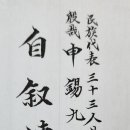 民族代表三十三人
殷哉申錫九
自叙